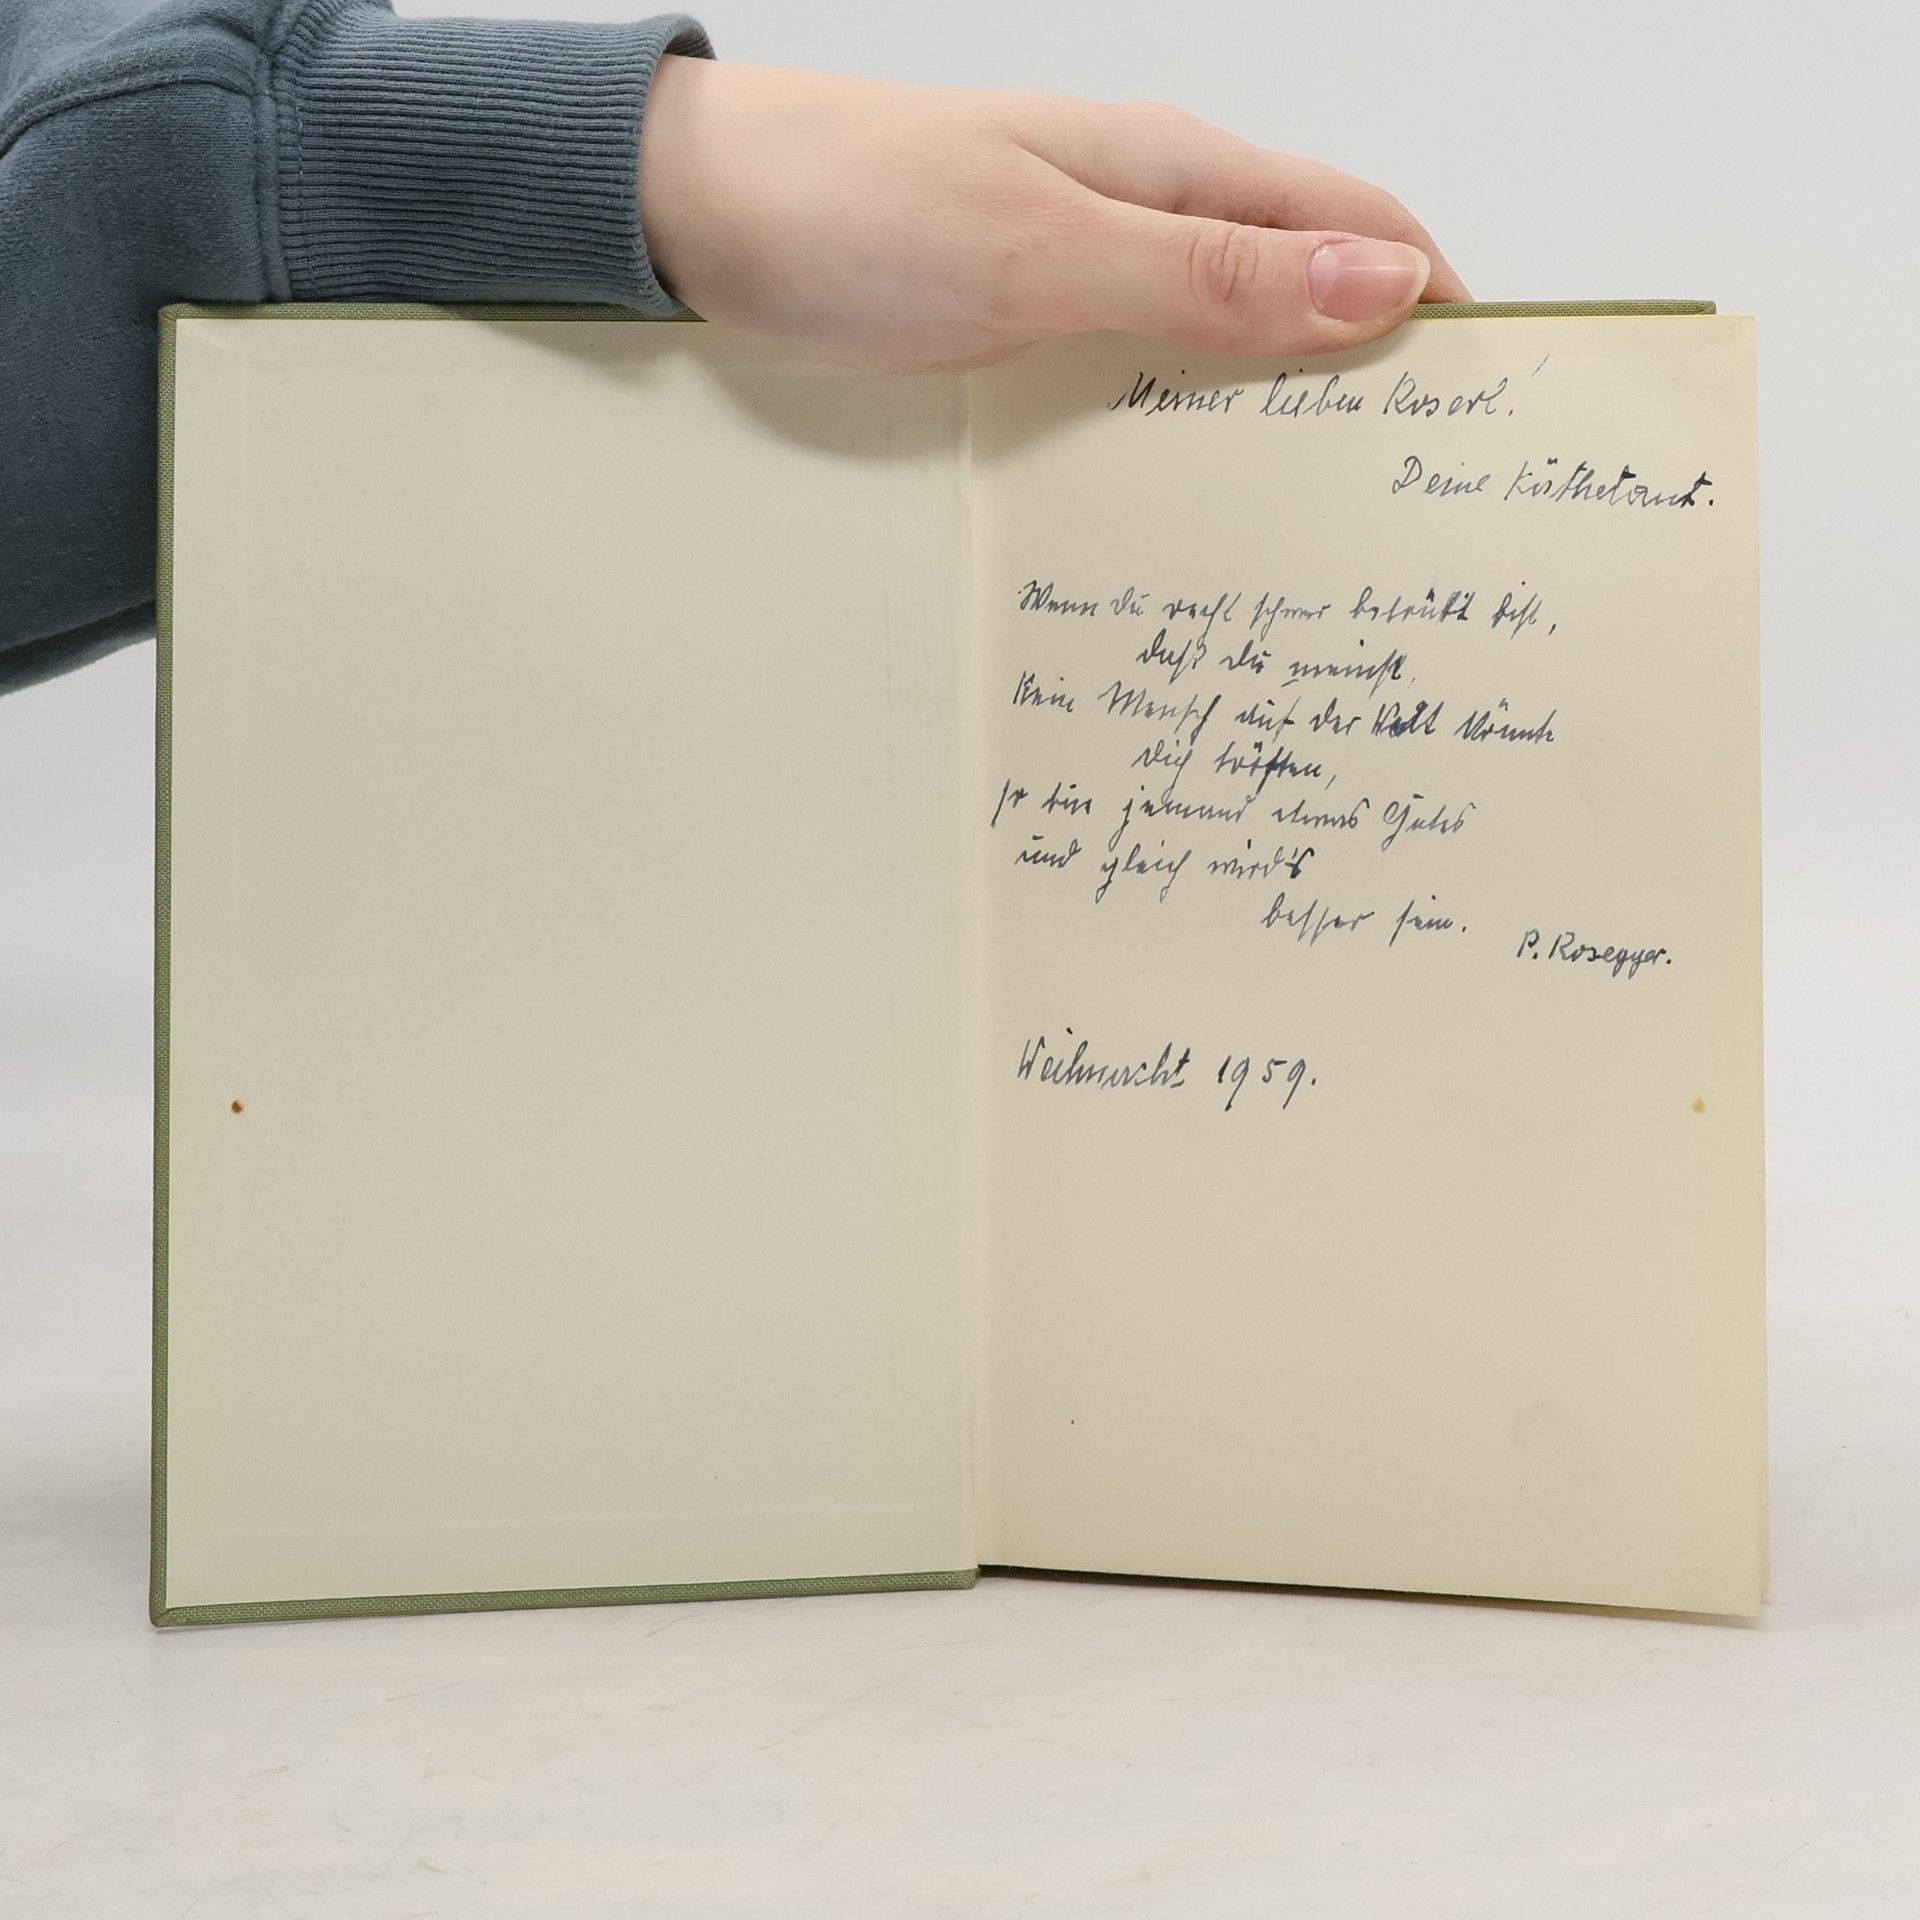 Meiner lieben Roserl!
Deine Käthetant.
Wenn du recht schwer betrübt bist,
daß du meinst,
Kein Mensch auf der Welt könnte
dich trösten,
so tue jemand etwas Gutes
und gleich wird's
besser sein.
P. Rosegger.
Weihnacht 1959.